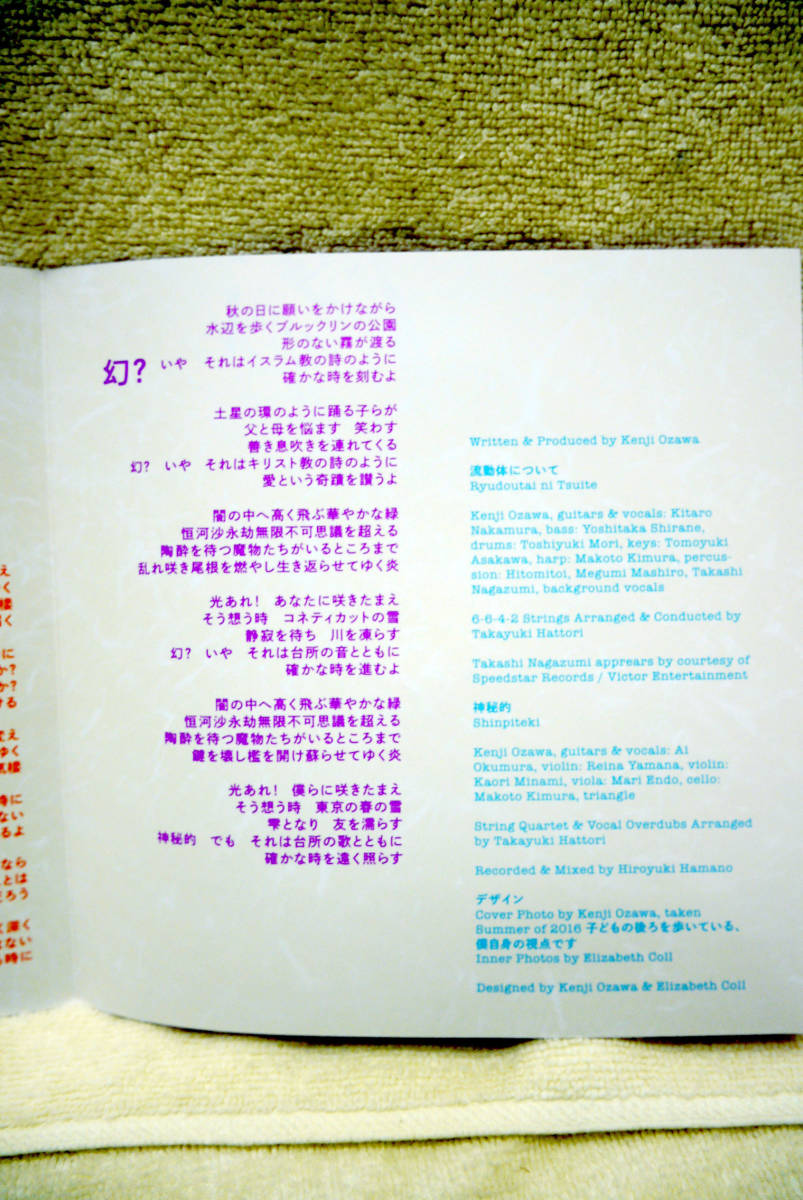 秋の日に願いをかけながら
水辺を歩くブルックリンの公園
形のない霧が渡る
幻? いや それはイスラム教の詩のように
確かな時を刻むよ
土星の環のように踊る子らが
父と母を悩ます 笑わす
善き息吹きを連れてくる
幻? いや それはキリスト教の詩のように
愛という奇蹟を讃うよ
闇の中へ高く飛ぶ華やかな緑
恒河沙永劫無限不可思議を超える
陶酔を待つ魔物たちがいるところまで
乱れ咲き尾根を燃やし生き返らせてゆく炎
光あれ! あなたに咲きたまえ
そう想う時 コネティカットの雪
静寂を待ち 川を凍らす
幻? いや それは台所の音とともに
確かな時を進むよ
闇の中へ高く飛ぶ華やかな緑
恒河沙永劫無限不可思議を超える
陶酔を待つ魔物たちがいるところまで
鍵を壊し檻を開け蘇らせてゆく炎
光あれ! 僕らに咲きたまえ
そう想う時 東京の春の雪
雫となり 友を濡らす
神秘的 でも それは台所の歌とともに
確かな時を遠く照らす
Written & Produced by Kenji Ozawa
流動体について
Ryudoutai ni Tsuite
Kenji Ozawa, guitars & vocals: Kitaro
Nakamura, bass: Yoshitaka Shirane,
drums: Toshiyuki Mori, keys: Tomoyuki
Asakawa, harp: Makoto Kimura, percus-
sion: Hitomitoi, Megumi Mashiro, Takashi
Nagazumi, background vocals
6-6-4-2 Strings Arranged & Conducted by
Takayuki Hattori
Takashi Nagazumi apprears by courtesy of
Speedstar Records / Victor Entertainment
神秘的
Shinpiteki
Kenji Ozawa, guitars & vocals: Ai
Okumura, violin: Reina Yamana, violin:
Kaori Minami, viola: Mari Endo, cello:
Makoto Kimura, triangle
String Quartet & Vocal Overdubs Arranged
by Takayuki Hattori
Recorded & Mixed by Hiroyuki Hamano
デザイン
Cover Photo by Kenji Ozawa, taken
Summer of 2016 子どもの後ろを歩いている、
僕自身の視点です
Inner Photos by Elizabeth Coll
Designed by Kenji Ozawa & Elizabeth Coll